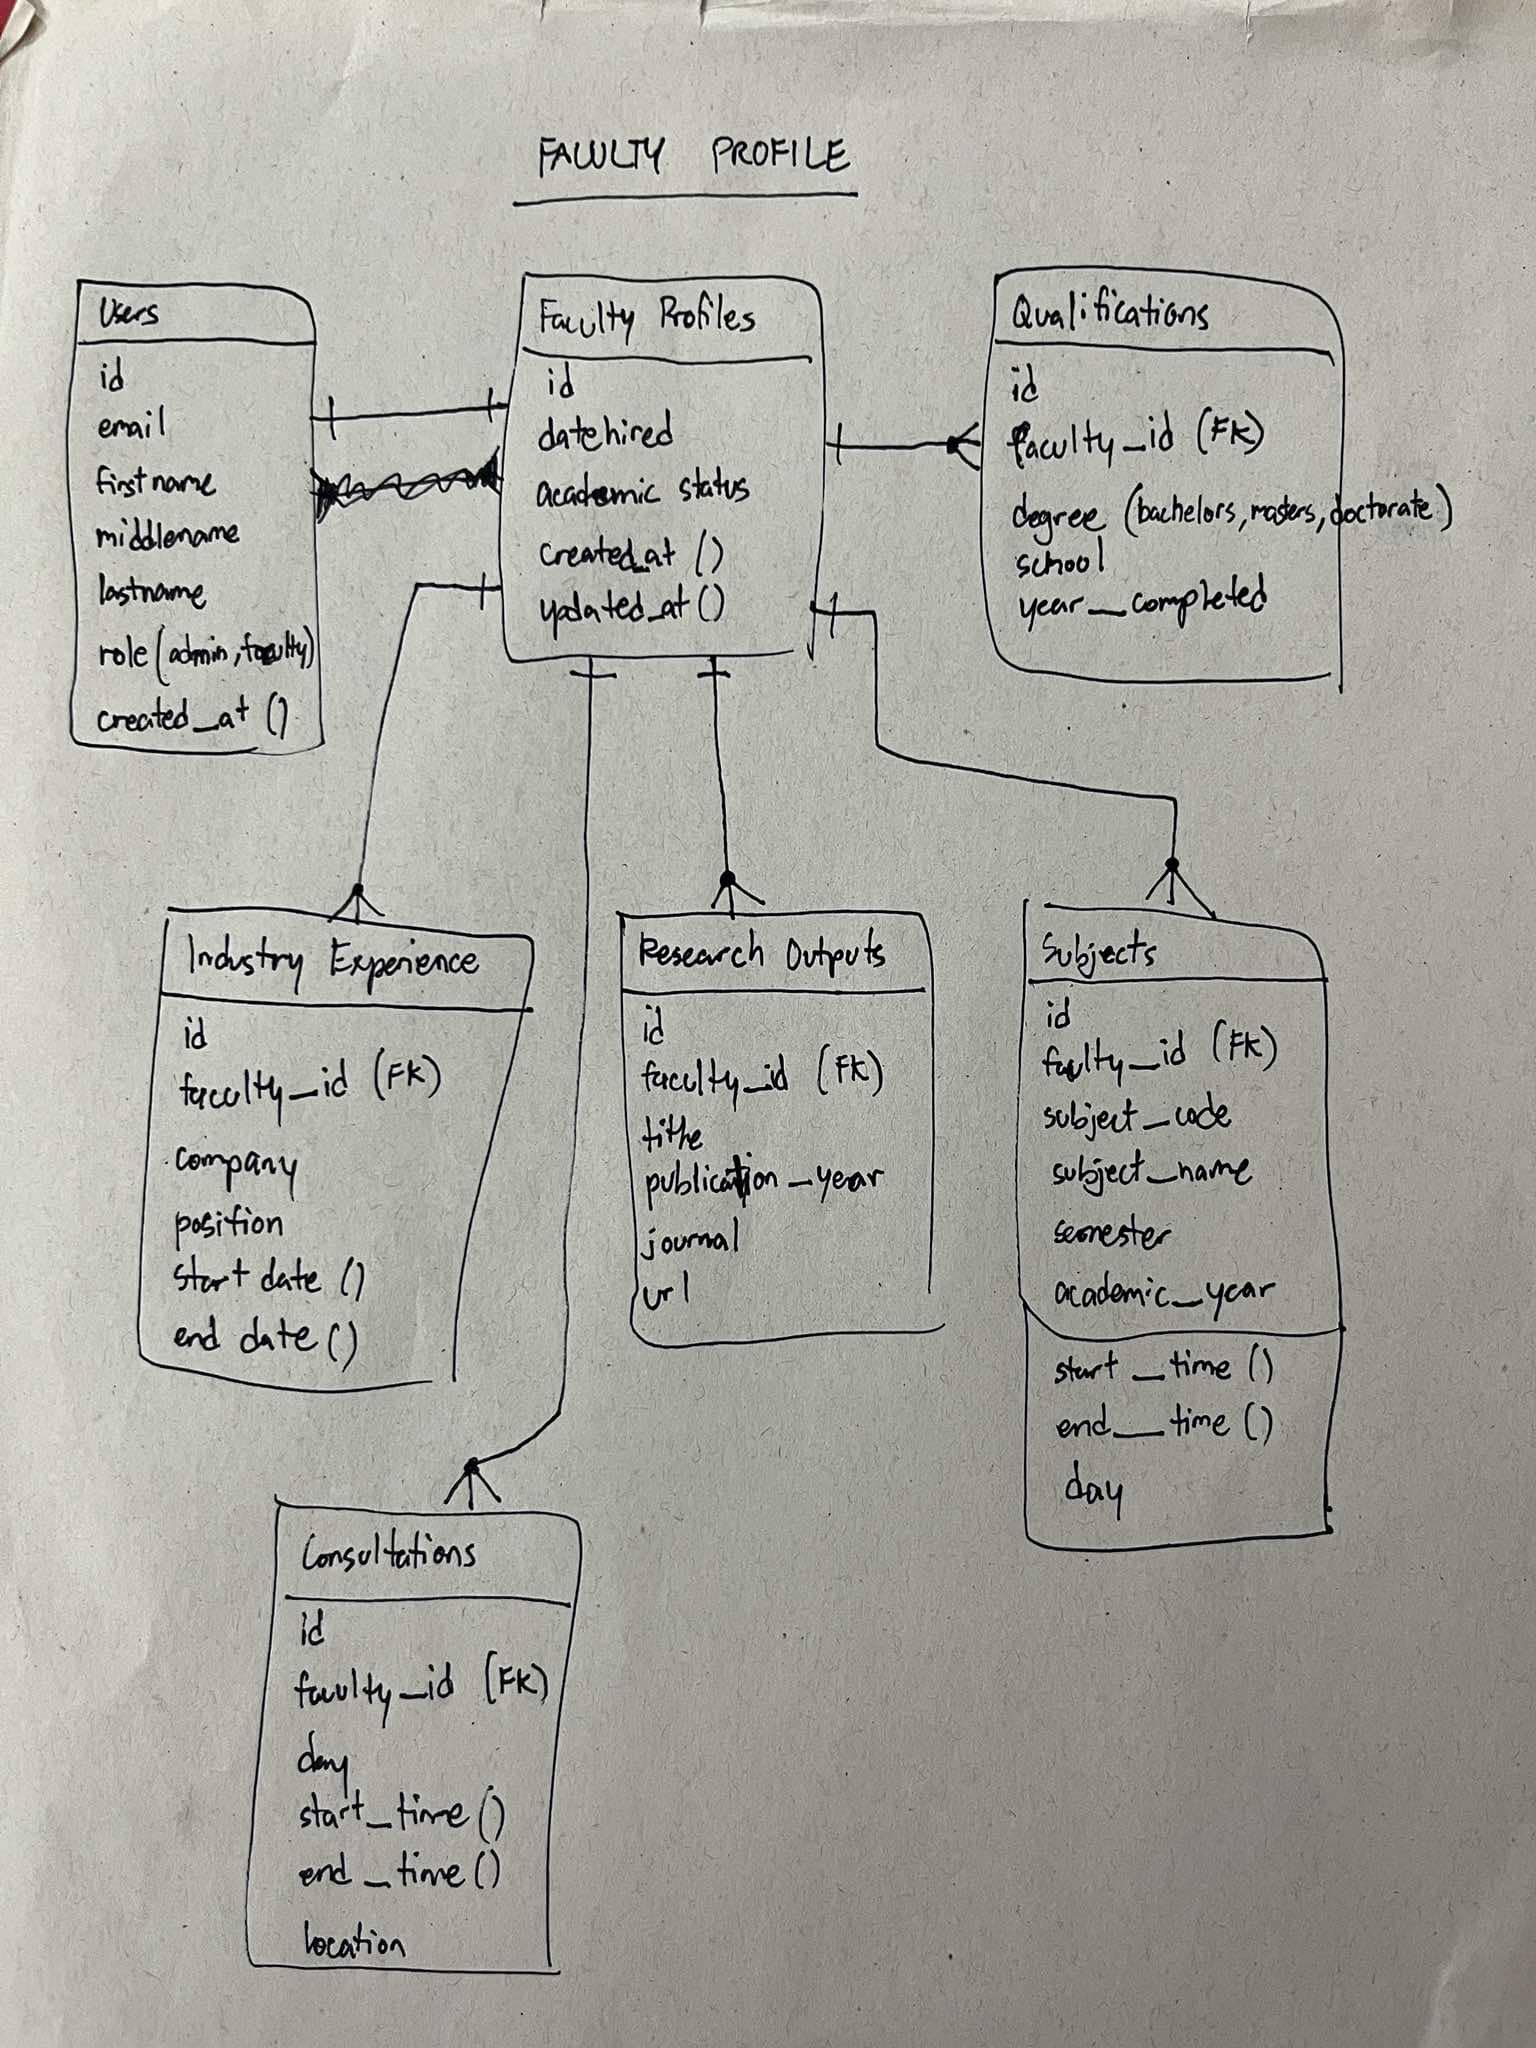 FACULTY PROFILE
Users
id
email
firstname
middlename
lastname
role (admin, faculty)
created_at ()
Faculty Profiles
id
datehired
academic status
created_at ()
updated_at ()
Qualifications
id
faculty_id (FK)
degree (bachelors, masters, doctorate)
school
year_completed
Industry Experience
id
faculty_id (FK)
company
position
start date ()
end date ()
Research Outputs
id
faculty_id (FK)
title
publication_year
journal
url
Subjects
id
faculty_id (FK)
subject_code
subject_name
semester
academic_year
start_time ()
end_time ()
day
Consultations
id
faculty_id (FK)
day
start_time ()
end_time ()
location